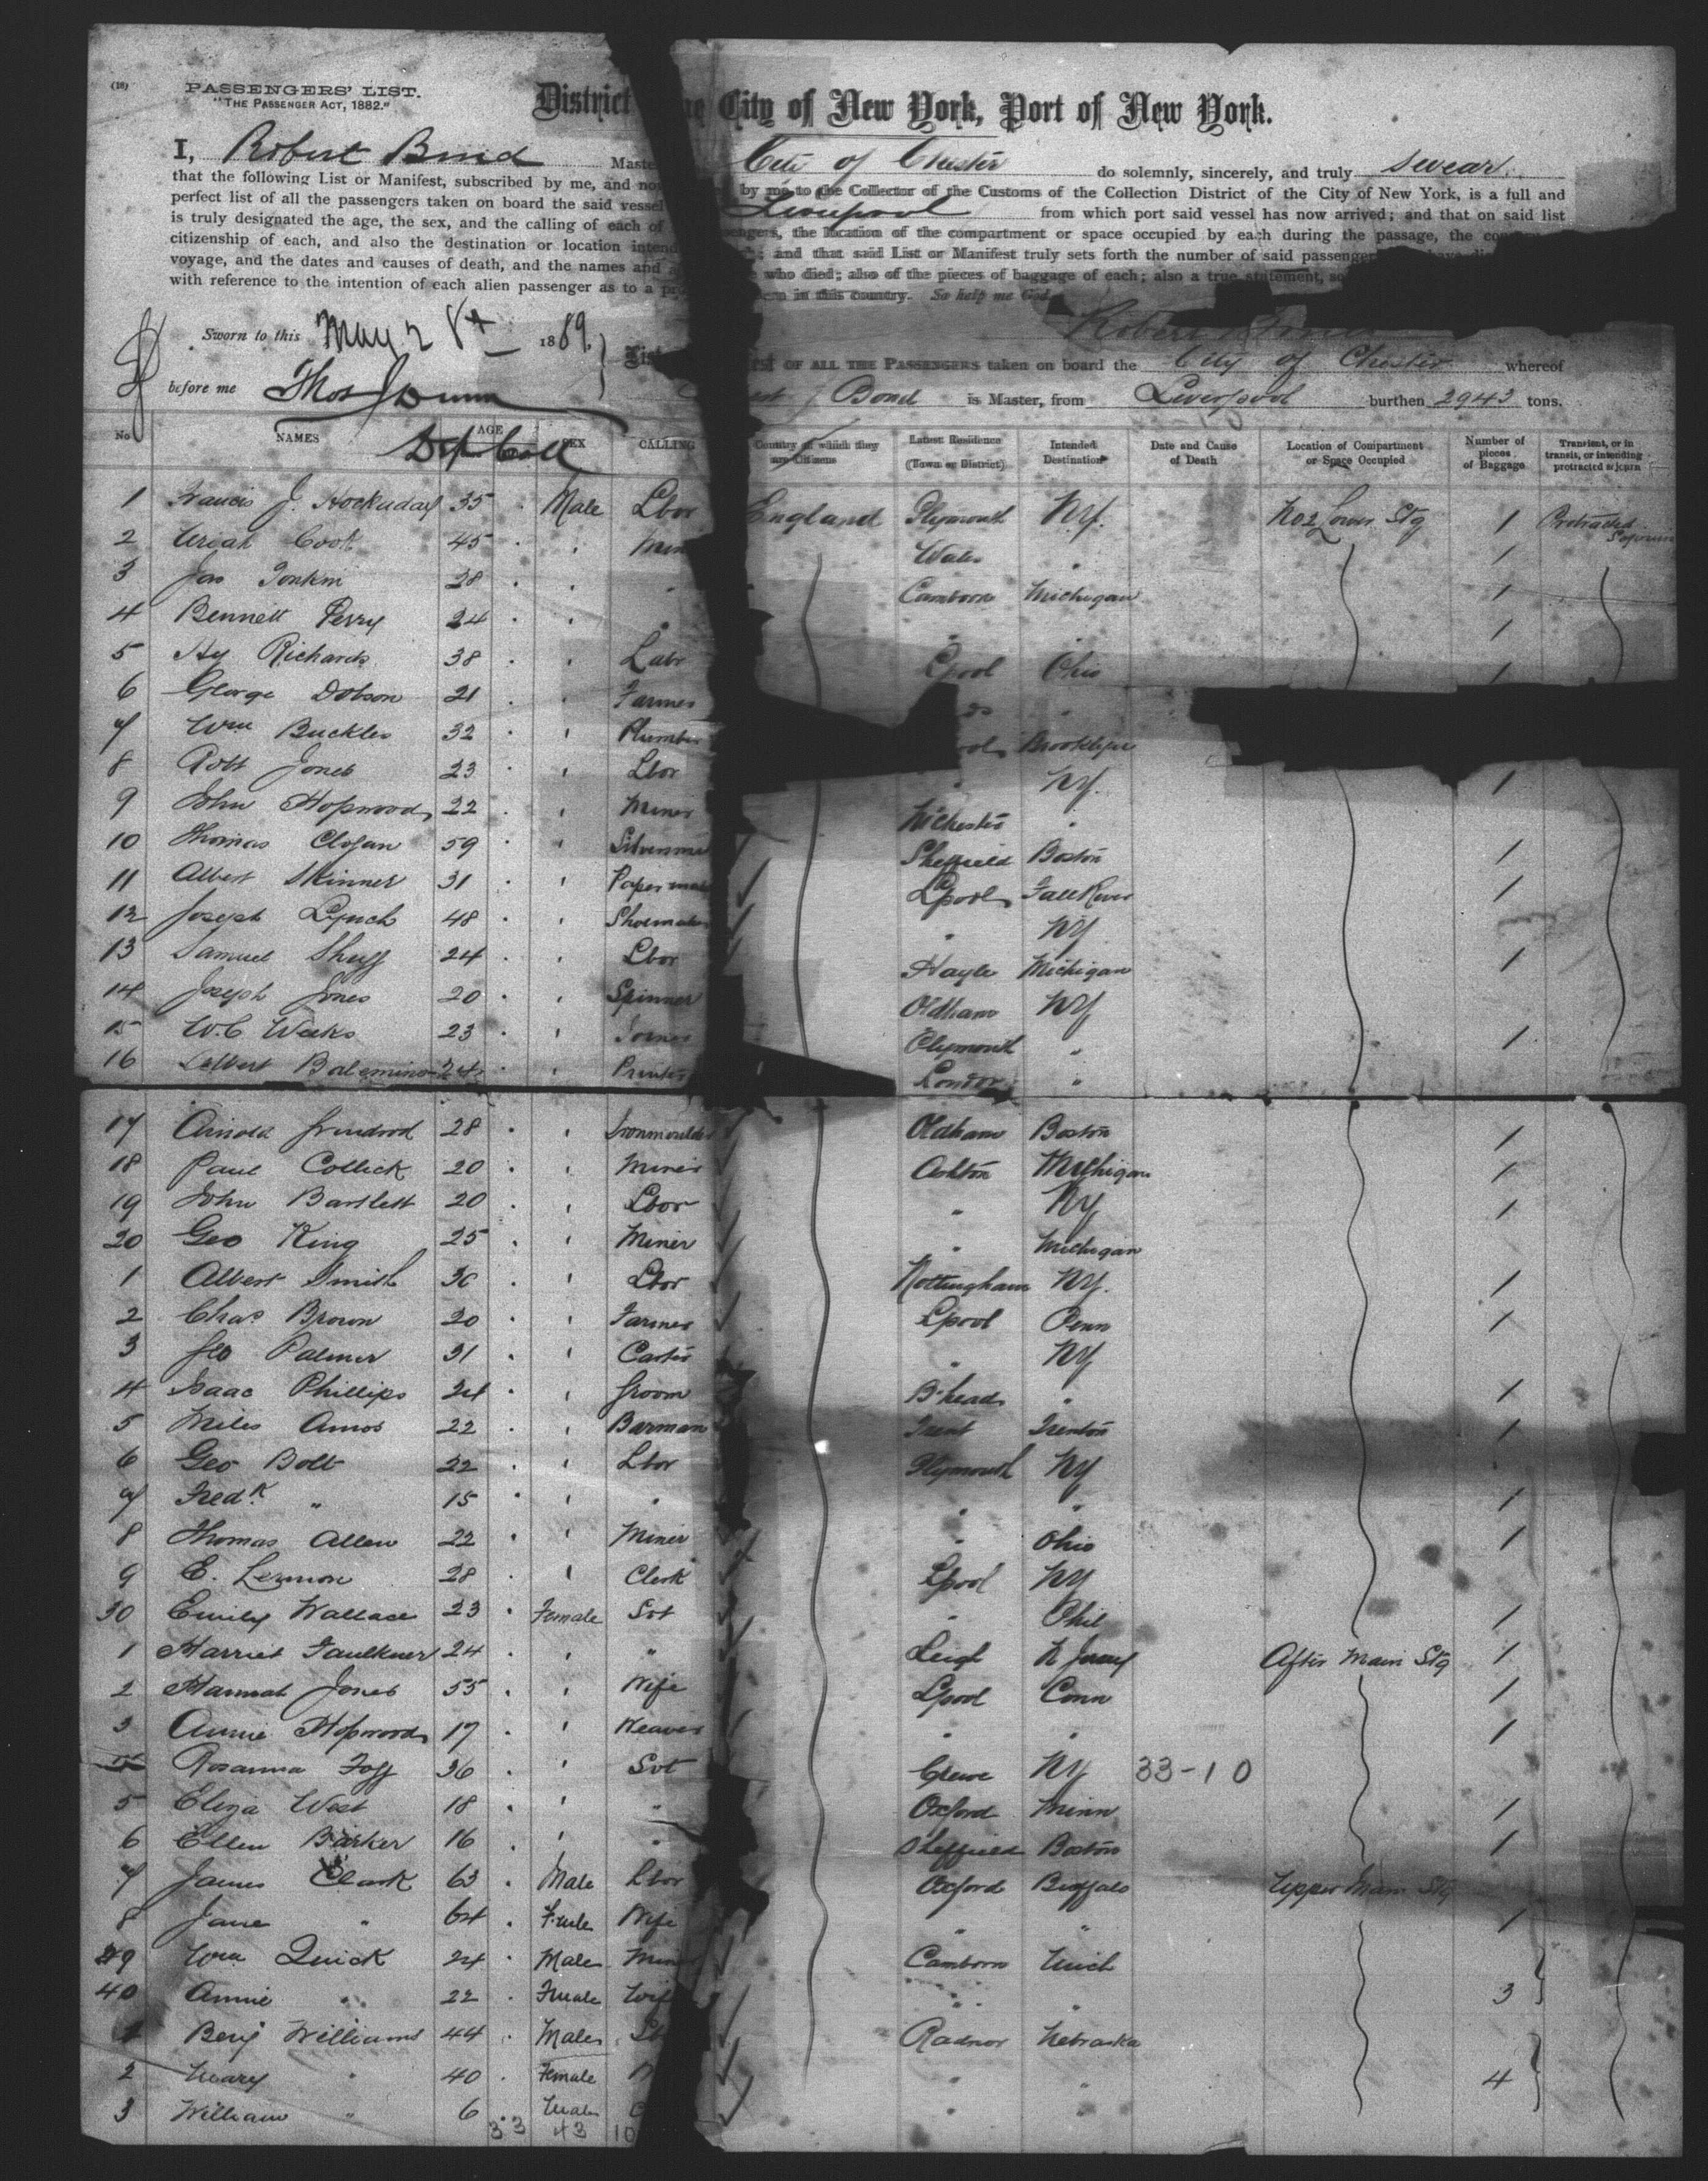 (18)
PASSENGERS' LIST.
"THE PASSENGER ACT, 1882."
District City of New York, Port of New York.
I, Robert Bond Maste City of Chester do solemnly, sincerely, and truly swear
that the following List or Manifest, subscribed by me, and now by me to the Collector of the Customs of the Collection District of the City of New York, is a full and
perfect list of all the passengers taken on board the said vessel Liverpool from which port said vessel has now arrived; and that on said list
is truly designated the age, the sex, and the calling of each of the location of the compartment or space occupied by each during the passage, the
citizenship of each, and also the destination or location intend and that said List or Manifest truly sets forth the number of said passenger
voyage, and the dates and causes of death, and the names and who died; also of the pieces of baggage of each; also a true statement, so
with reference to the intention of each alien passenger as to a in this country. So help me God
Robert Bond
Sworn to this May 28th 1889
before me Thos Dunn
Dep Coll
List OF ALL THE PASSENGERS taken on board the City of Chester whereof
Bond is Master, from Liverpool burthen 2943 tons.
No NAMES AGE SEX CALLING Country of which they are Citizens Latest Residence (Town or District) Intended Destination Date and Cause of Death Location of Compartment or Space Occupied Number of pieces of Baggage Transient, or in transit, or intending protracted sojourn
1 Francis J. Hockaday 35 Male Lbor England Plymouth NY. No 2 Lower Stg 1 Protracted Sojourn
2 Uriah Cook 45 " Min Wales " 1
3 Jas Tonkin 28 " " Camborn Michigan 1
4 Bennett Perry 24 " " " " 1
5 Hy Richards 38 " Labr Lpool Ohio 1
6 George Dobson 21 " Farmer "
7 Wm Buckles 32 " Plumber Brooklyn
8 Robt Jones 23 " Lbor " NY. 1
9 John Hopwood 22 " Miner "
10 Thomas 59 " Sheffield Boston 1
11 Albert Skinner 31 " Paper Lpool Fall River 1
12 Joseph Lynch 48 " Shoemaker " NY
13 Samuel 24 " Lbor Hayle Michigan 1
14 Joseph Jones 20 " Spinner Oldham NY
15 W.C Weeks 23 " Plymouth " 1
16 24 " Printer London "
17 Arnold Grindrod 28 " Ironmoulder Oldham Boston 1
18 Paul Collick 20 " Miner Ashton Michigan 1
19 John Bartlett 20 " Lbor " NY 1
20 Geo King 25 " Miner " Michigan
1 Albert Smith 30 " Lbor Nottingham NY. 1
2 Chas Brown 20 " Farmer Lpool Penn 1
3 Geo Palmer 31 " Carter " NY
4 Isaac Phillips 24 " Groom B'head " 1
5 Miles Amos 22 " Barman Trent Trenton 1
6 Geo Bolt 22 " Lbor Plymouth NY
7 Fredk " 15 " " " " 1
8 Thomas Allen 22 " Miner " Ohio 1
9 E. Lemmon 28 " Clerk Lpool NY
30 Emily Wallace 23 Female Svt " Phil 1
1 Harriet Faulkner 24 " " Leigh N Jersey After Main Stg 1
2 Hannah Jones 55 " Wife Lpool Conn 1
3 Annie Hopwood 17 " Weaver " " 1
Rosanna Fogg 36 " Svt Crewe NY 33-10
5 Eliza West 18 " " Oxford Minn 1
6 Ellen Barker 16 " " Sheffield Boston 1
7 James Clark 63 Male Lbor Oxford Buffalo Upper Main Stg
8 Jane " 64 Fmle Wife " " 1
39 Wm Quick 24 Male Min Camborn Mich
40 Annie " 22 Female Wif " " 3
1 Benj Williams 44 Male Lb Radnor Nebraska
2 Mary " 40 Female " " 4
3 William " 6 Male " "
33 43 10